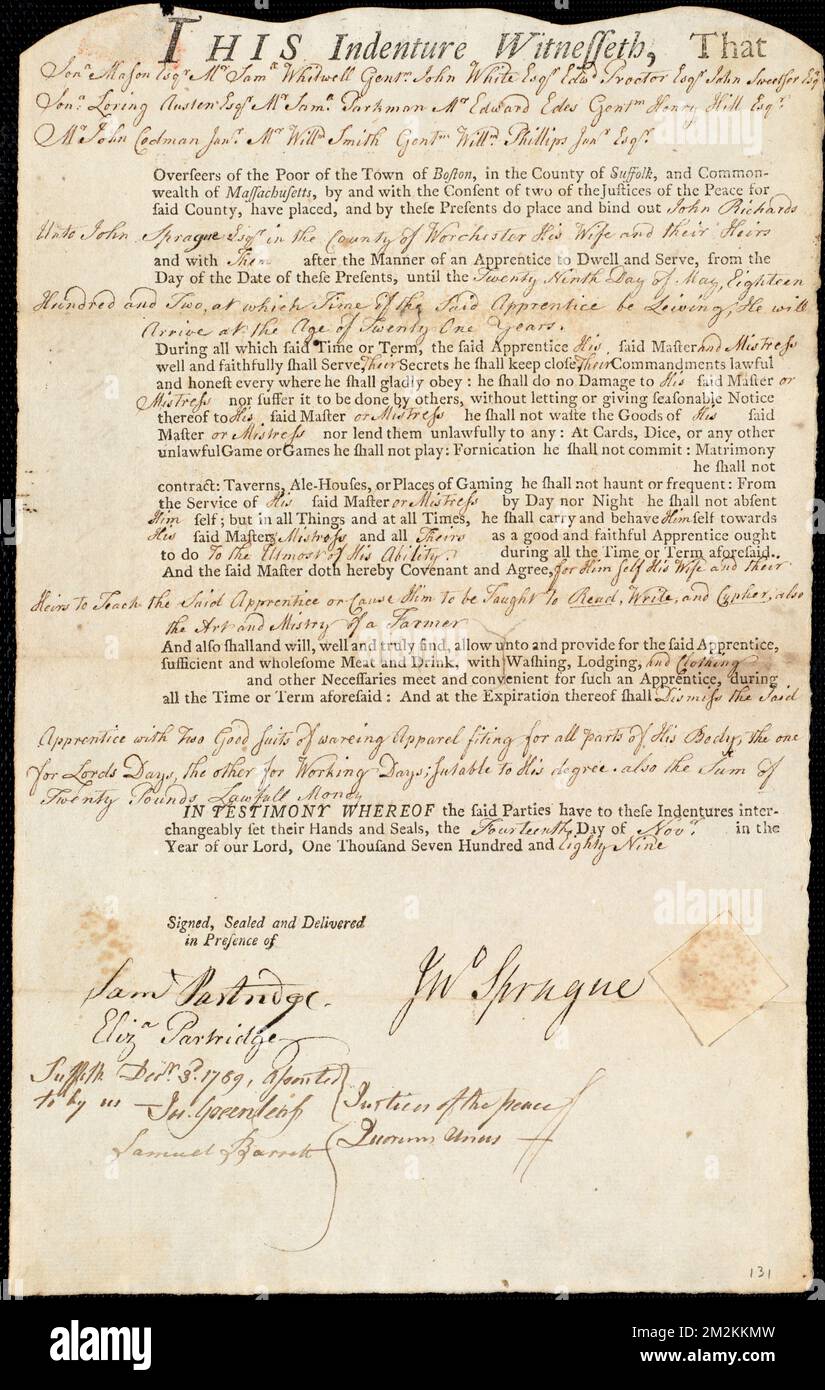 THIS Indenture Witnesseth, That
Jonª Mason Esqr Mr Samll Whitwell Gentm John White Esqr Edwd Proctor Esqr John Sweetser Esqr
Jonª Loring Austen Esqr Mr Samll Parkman Mr Edward Edes Gentm Henry Hill Esqr
Mr John Codman Junr Mr Willm Smith Gentm Willm Phillips Junr Esqr
Overseers of the Poor of the Town of Boston, in the County of Suffolk, and Common-
wealth of Massachusetts, by and with the Consent of two of the Justices of the Peace for
said County, have placed, and by these Presents do place and bind out John Richards
Unto John Sprague Esqr in the County of Worchester His Wife and their Heirs
and with Them after the Manner of an Apprentice to Dwell and Serve, from the
Day of the Date of these Presents, until the Twenty Ninth Day of May, Eighteen
Hundred and Two, at which Time if the Said Apprentice be Leiving, He will
Arrive at the Age of Twenty One Years.
During all which said Time or Term, the said Apprentice His said Master and Mistress
well and faithfully shall Serve, Their Secrets he shall keep close, Their Commandments lawful
and honest every where he shall gladly obey: he shall do no Damage to His said Master or
Mistress nor suffer it to be done by others, without letting or giving seasonable Notice
thereof to His said Master or Mistress he shall not waste the Goods of His said
Master or Mistress nor lend them unlawfully to any: At Cards, Dice, or any other
unlawful Game or Games he shall not play: Fornication he shall not commit: Matrimony
he shall not
contract: Taverns, Ale-Houses, or Places of Gaming he shall not haunt or frequent: From
the Service of His said Master or Mistress by Day nor Night he shall not absent
Him self; but in all Things and at all Times, he shall carry and behave Him self towards
His said Master & Mistress and all Theirs as a good and faithful Apprentice ought
to do To the Utmost of His Ability. during all the Time or Term aforesaid.
And the said Master doth hereby Covenant and Agree, for Him self His Wife and their
Heirs to Teach the Said Apprentice or Cause Him to be Taught to Read, Write, and Cypher, also
the Art and Mistry of a Farmer
And also shall and will, well and truly find, allow unto and provide for the said Apprentice,
sufficient and wholesome Meat and Drink, with Washing, Lodging, and Clothing
and other Necessaries meet and convenient for such an Apprentice, during
all the Time or Term aforesaid: And at the Expiration thereof shall Dismiss the Said
Apprentice with Two Good suits of wareing Apparel fiting for all parts of His Body, the one
for Lords Days, the other for Working Days; sutable to His degree. also the Sum of
Twenty Pounds Lawfull Money
IN TESTIMONY WHEREOF the said Parties have to these Indentures inter-
changeably set their Hands and Seals, the Fourteenth Day of Novr in the
Year of our Lord, One Thousand Seven Hundred and Eighty Nine
Signed, Sealed and Delivered
in Presence of
Saml Partridge.
Jno Sprague
Eliza Partridge
Suffolk Decr 3d. 1789, assented
to by us Jos. Greenleaf Justices of the peace
Samuel Barrett Quorum Unus
131
alamy
Image ID: 2M2KKMW
www.alamy.com